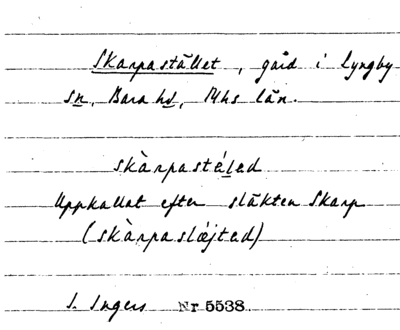 Skarpastället, gård i Lyngby
sn, Bara hd, Mhs län.
skàrpastéled
Uppkallat efter släkten Skarp
(skàrpaslǽjted)
I. Ingers Nr 5538